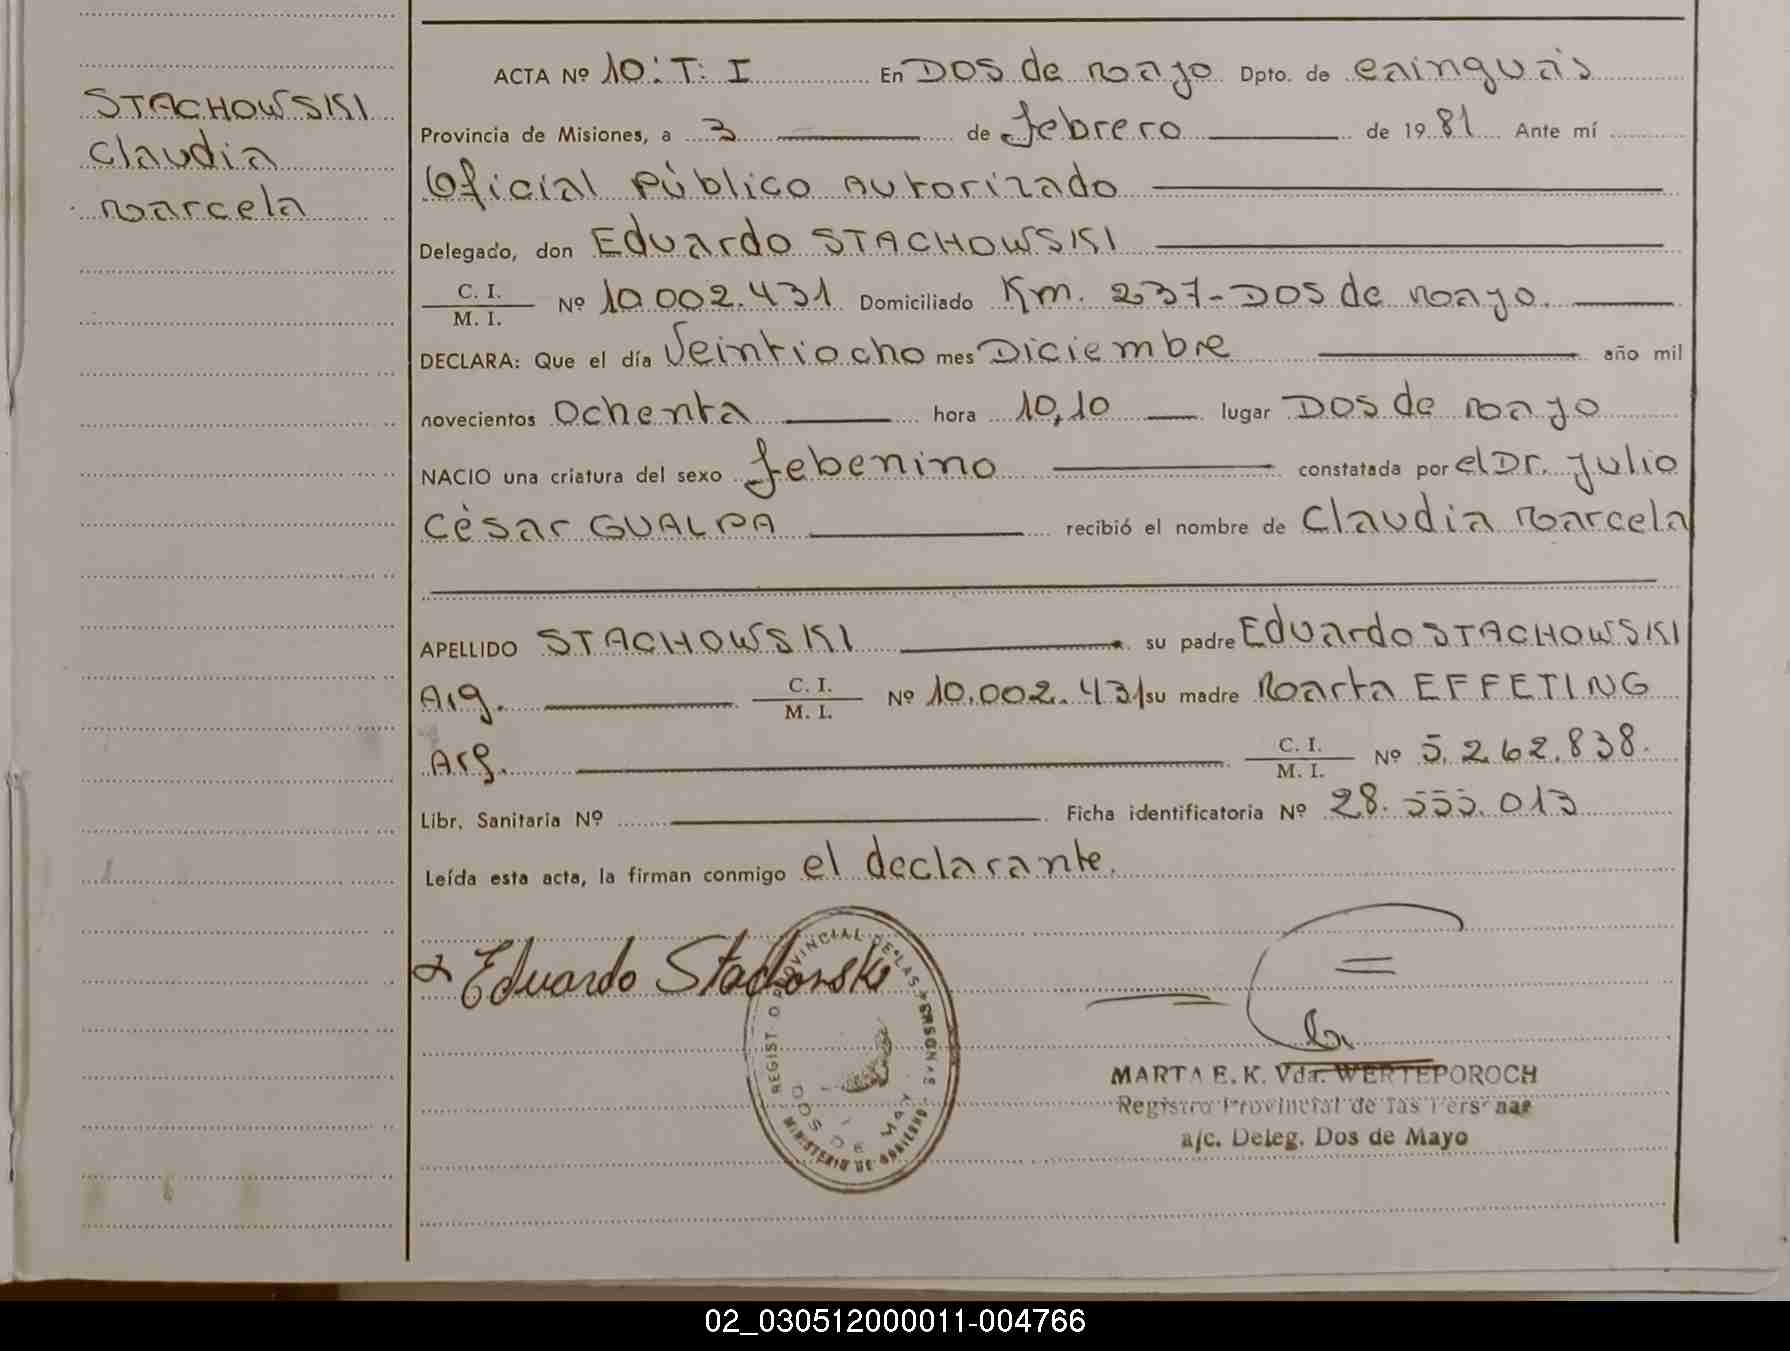 STACHOWSKI
Claudia
Marcela
ACTA Nº 10:T: I En DOS de Mayo Dpto. de Cainguás
Provincia de Misiones, a 3 de febrero de 1981 Ante mí
Oficial Público Autorizado
Delegado, don Eduardo STACHOWSKI
C. I.
M. I. Nº 10.002.431 Domiciliado Km. 237-DOS de Mayo.
DECLARA: Que el día Veintiocho mes Diciembre año mil
novecientos Ochenta hora 10,10 lugar DOS de Mayo
NACIO una criatura del sexo febenino constatada por el Dr. Julio
César GUALPA recibió el nombre de Claudia Marcela
APELLIDO STACHOWSKI su padre Eduardo STACHOWSKI
Arg. C. I.
M. I. Nº 10.002.431 su madre Marta EFFETING
Arg. C. I.
M. I. Nº 5.262.838.
Libr. Sanitaria Nº Ficha identificatoria Nº 28.555.013
Leída esta acta, la firman conmigo el declarante.
Eduardo Stachowski
REGISTRO PROVINCIAL DE LAS PERSONAS
DOS DE MAYO
MINISTERIO DE GOBIERNO
MARTA E. K. Vda. WERTEPOROCH
Registro Provincial de las Personas
a/c. Deleg. Dos de Mayo
02_030512000011-004766